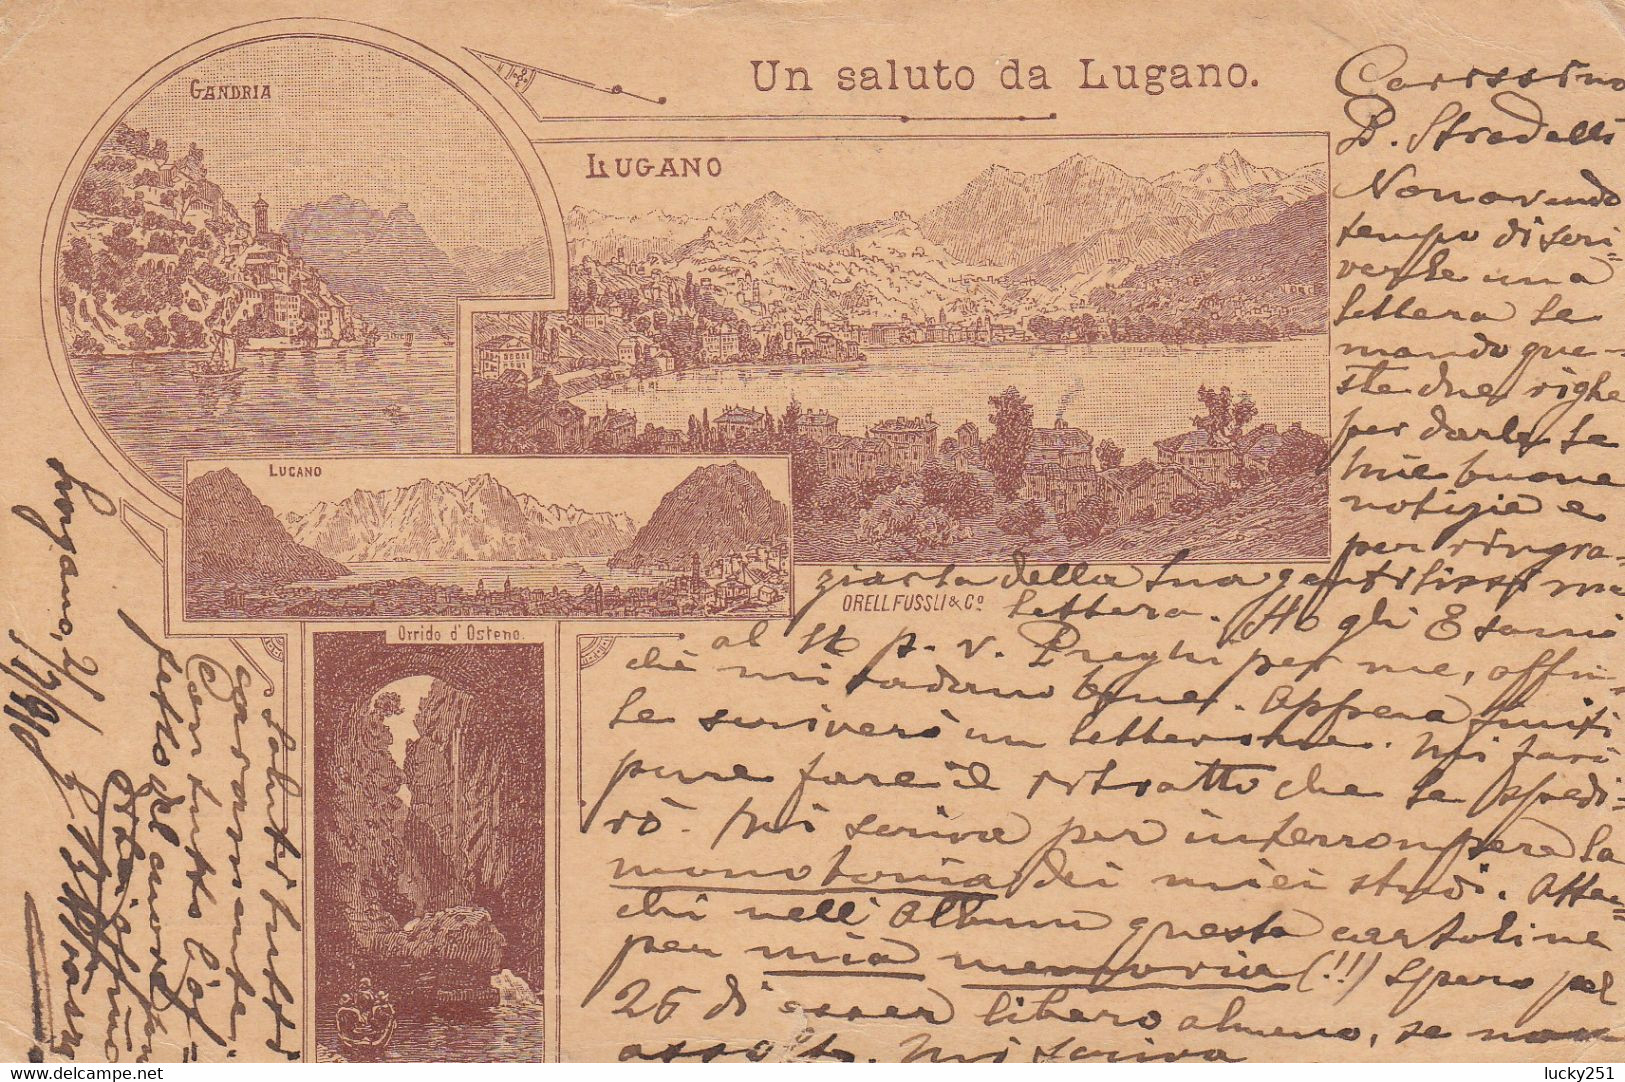 Un saluto da Lugano.
GANDRIA
LUGANO
LUGANO
Orrido d'Osteno.
ORELL FUSSLI & Cº
Carissimo
D. Stradelli
Non avendo
tempo di scri=
verle una
lettera Le
mando que-
ste due righe
per darle le
mie buone
notizie e
per ringra-
ziarla della sua gentilissima
lettera. Ho gli Esami
al 16 p. v. Preghi per me, affin-
chè mi vadano bene. Appena finiti
Le scriverò un letterone. Mi farò
pure fare il ritratto che Le spedi-
rò. Mi scriva per interrompere la
monotonia dei miei studi. Attac-
chi nell'Album questa cartolina
per mia memoria (!!) Spero pel
26 di esser libero almeno, se non
assolto. Mi scriva
Saluti tutti
caramente.
Con tutto l'af=
fetto del cuore
Lugano, 2/7 98
lucky251